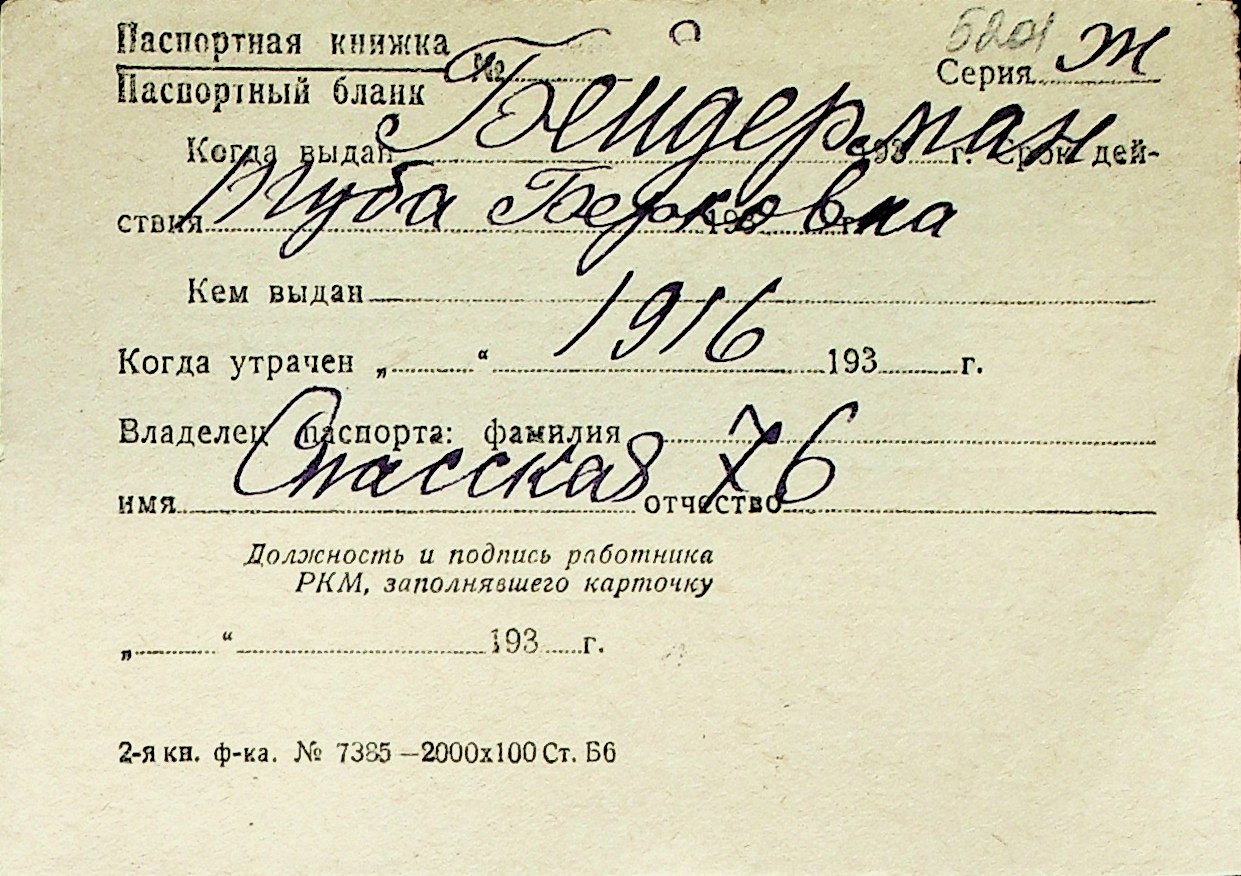 Паспортная книжка
Паспортный бланк
№ Серия Ж
5201
Бейдерман
Когда выдан 193 г. Срок дей-
Туба Берковна
ствия 193 г.
Кем выдан
1916
Когда утрачен „ “ 193 г.
Владелец паспорта: фамилия
Спасская 76
имя отчество
Должность и подпись работника
РКМ, заполнявшего карточку
„ “ 193 г.
2-я кн. ф-ка. № 7385—2000х100 Ст. Б6